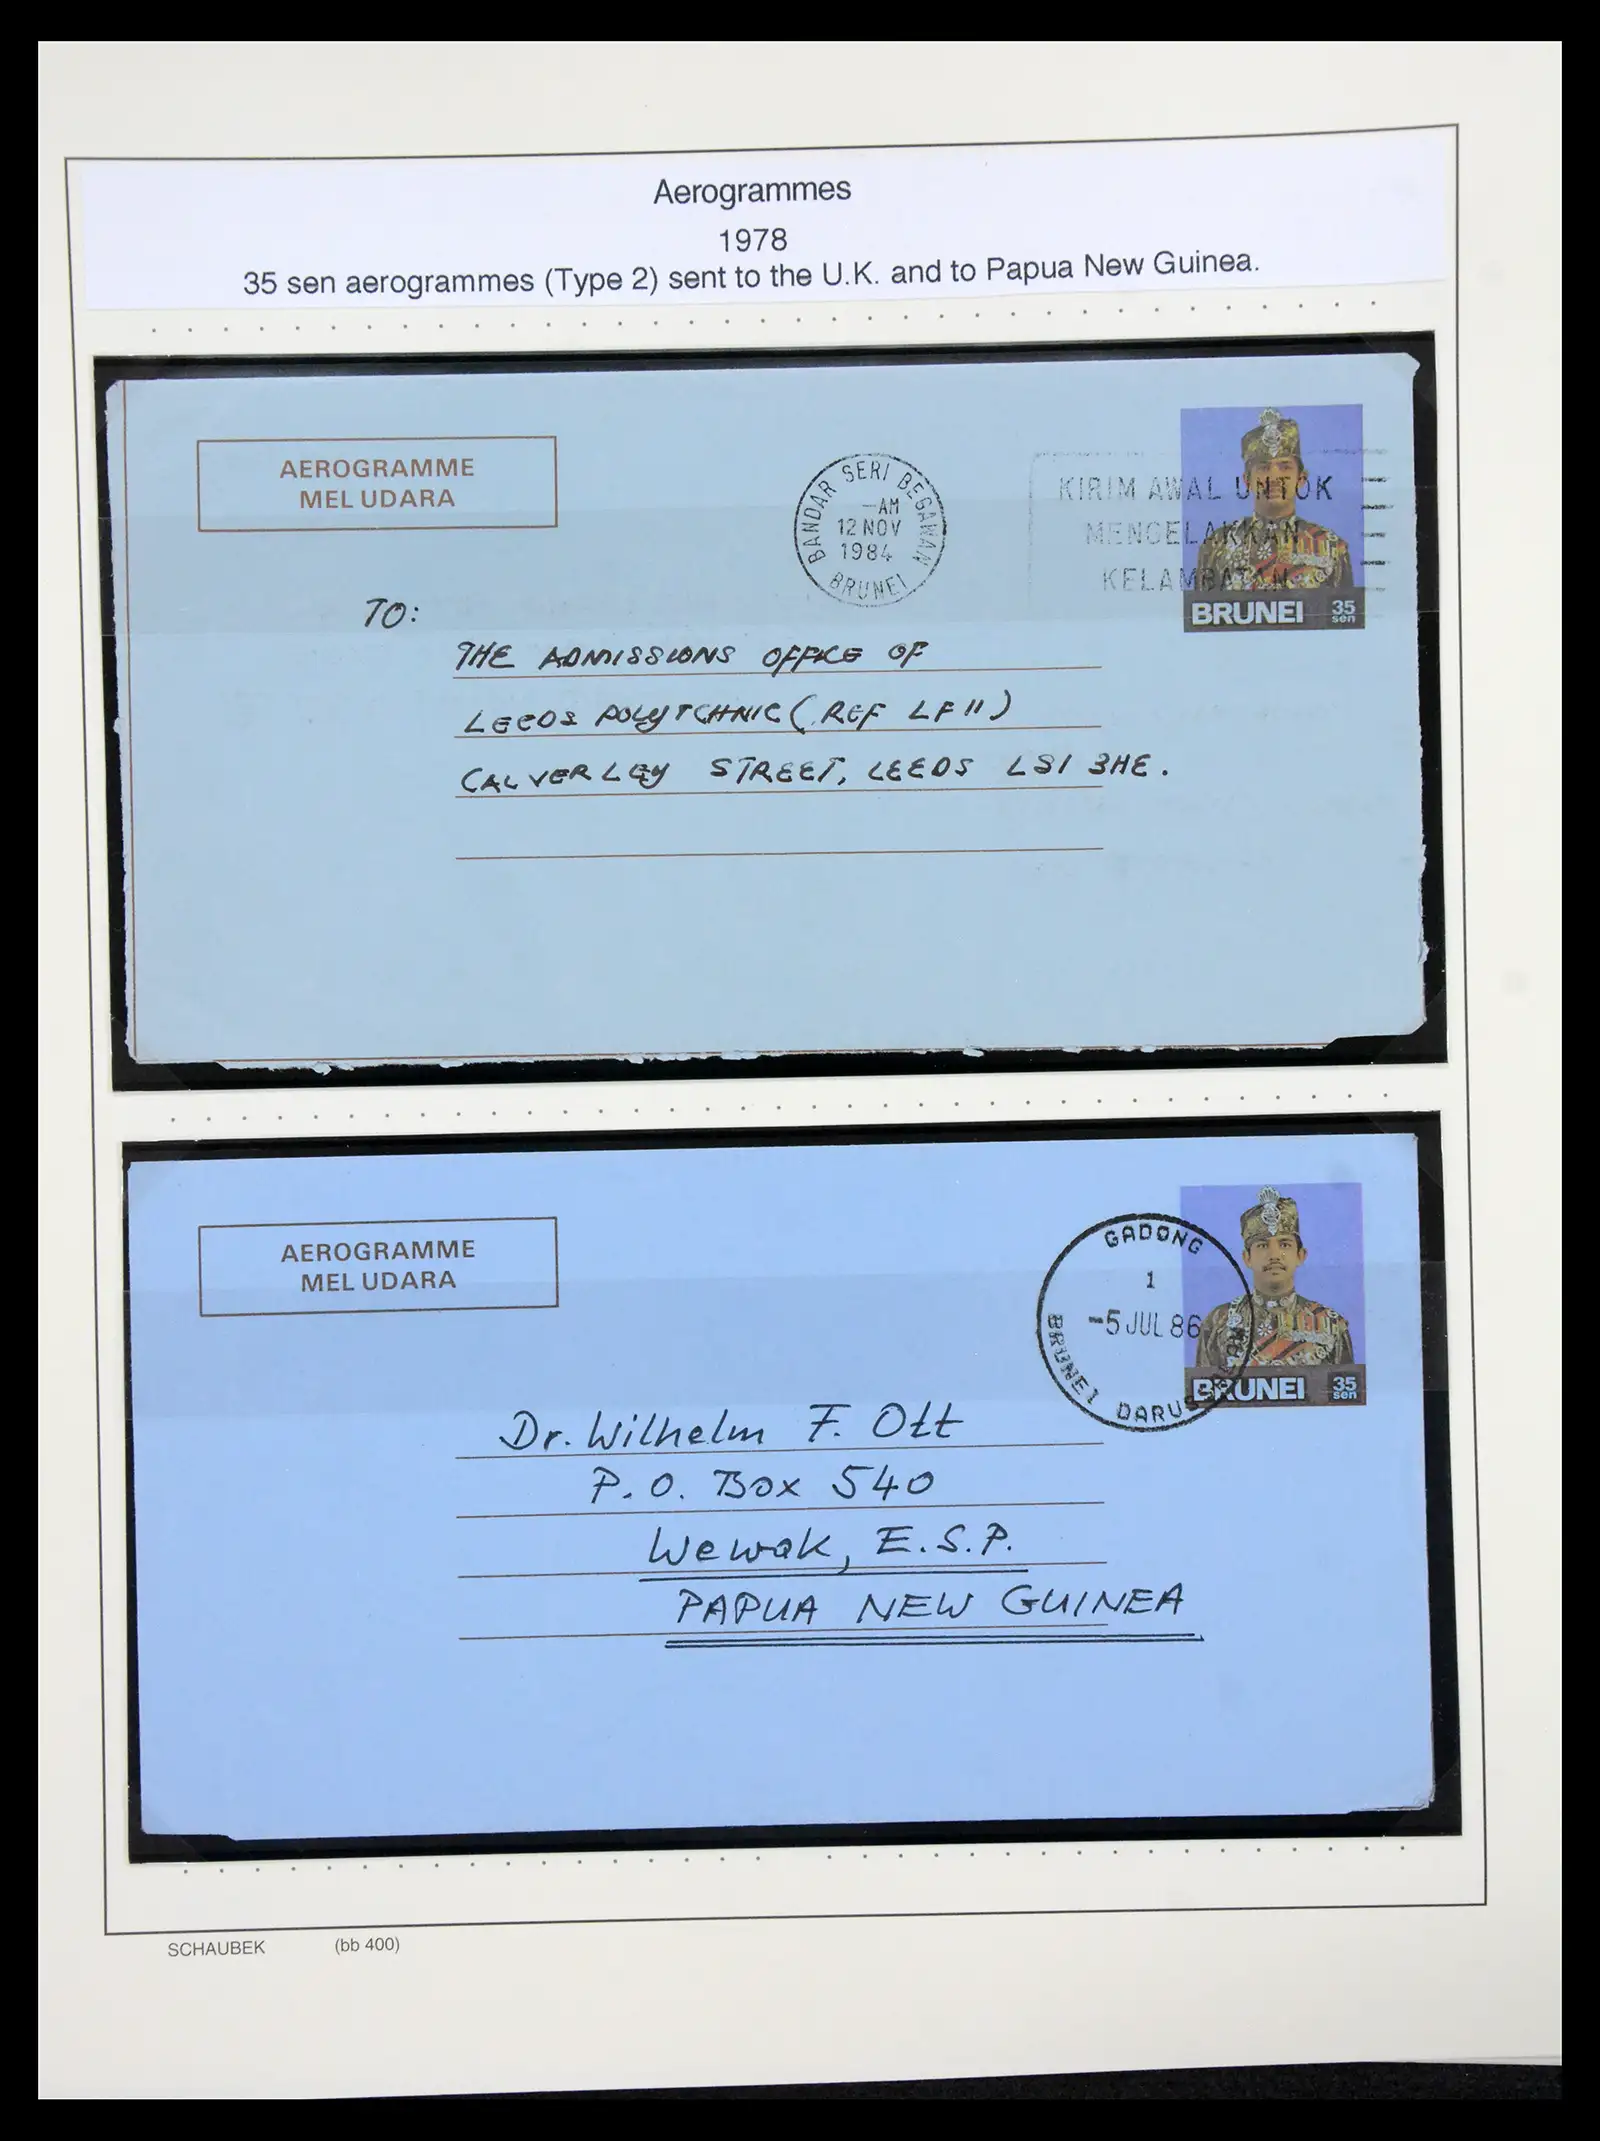 Aerogrammes
1978
35 sen aerogrammes (Type 2) sent to the U.K. and to Papua New Guinea.
AEROGRAMME
MEL UDARA
BANDAR SERI BEGAWAN
—AM
12 NOV
1984
BRUNEI
KIRIM AWAL UNTOK
MENGELAKKAN
KELAMBATAN
BRUNEI 35
sen
TO:
THE ADMISSIONS OFFICE OF
LEEDS POLYTCHNIC (REF LF11)
CALVERLEY STREET, LEEDS LS1 3HE.
AEROGRAMME
MEL UDARA
GADONG
1
-5 JUL 86
BRUNEI DARUSSALAM
BRUNEI 35
sen
Dr. Wilhelm F. Ott
P.O. Box 540
Wewak, E.S.P.
PAPUA NEW GUINEA
SCHAUBEK (bb 400)